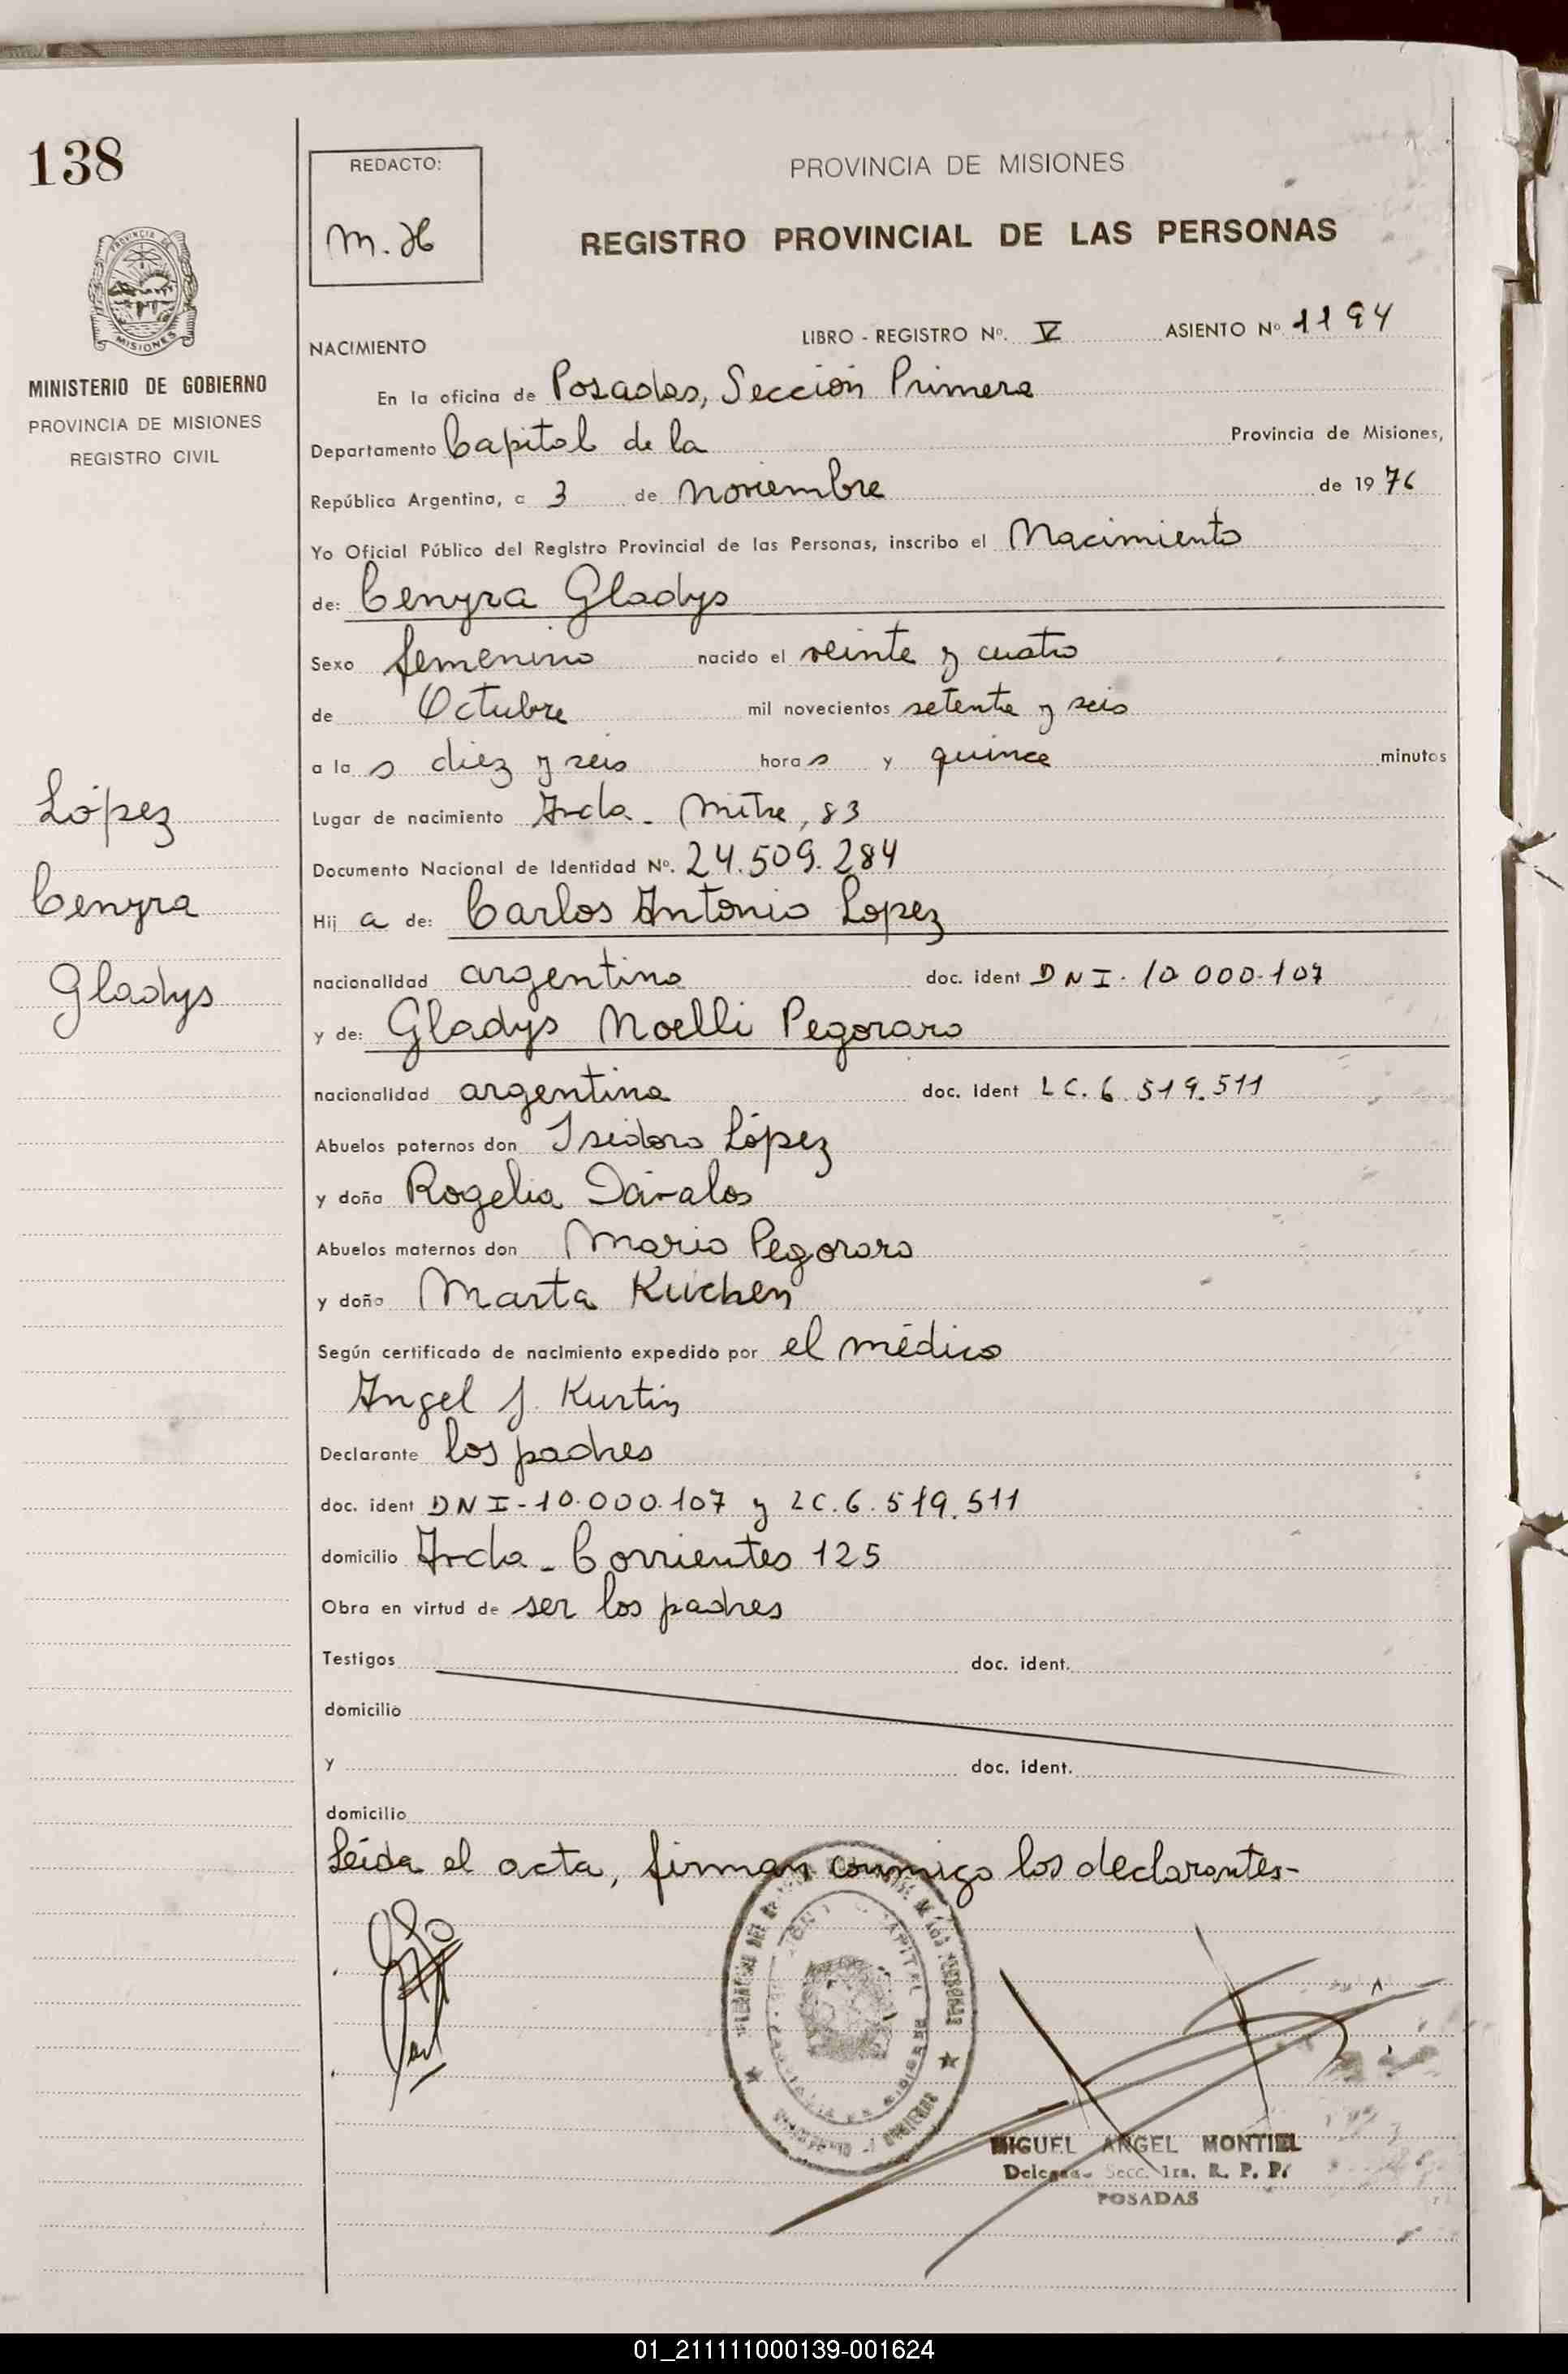 138
PROVINCIA DE
MISIONES
MINISTERIO DE GOBIERNO
PROVINCIA DE MISIONES
REGISTRO CIVIL
López
Cenyra
Gladys
REDACTO:
M. H
PROVINCIA DE MISIONES
REGISTRO PROVINCIAL DE LAS PERSONAS
NACIMIENTO LIBRO - REGISTRO Nº. V ASIENTO Nº 1194
En la oficina de Posadas, Sección Primera
Departamento Capital de la Provincia de Misiones,
República Argentina, a 3 de noviembre de 1976
Yo Oficial Público del Registro Provincial de las Personas, inscribo el Nacimiento
de: Cenyra Gladys
Sexo femenino nacido el veinte y cuatro
de Octubre mil novecientos setenta y seis
a la s diez y seis hora s y quince minutos
Lugar de nacimiento Avda. Mitre, 83
Documento Nacional de Identidad Nº. 24.509.284
Hij a de: Carlos Antonio Lopez
nacionalidad argentino doc. ident DNI. 10.000.107
y de: Gladys Noelli Pegoraro
nacionalidad argentina doc. ident LC. 6.519.511
Abuelos paternos don Isidoro López
y doña Rogelia Dávalos
Abuelos maternos don Mario Pegoraro
y doña Marta Kuchen
Según certificado de nacimiento expedido por el médico
Angel J. Kurtin
Declarante los padres
doc. ident DNI-10.000.107 y LC.6.519.511
domicilio Avda. Corrientes 125
Obra en virtud de ser los padres
Testigos doc. ident.
domicilio
y doc. ident.
domicilio
Leída el acta, firman conmigo los declarantes-
MIGUEL ANGEL MONTIEL
Delegado Secc. 1ra. R. P. P.
POSADAS
01_211111000139-001624